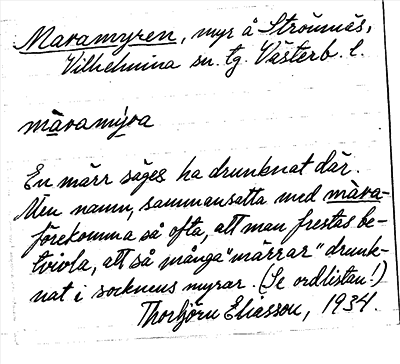 Maramyren, myr å Strömnäs,
Vilhelmina sn. tg. Västerb. l.
màramýra
En märr säges ha drunknat där.
Men namn, sammansatta med màra-
förekomma så ofta, att man frestas be-
tvivla, att så många "märrar" drunk-
nat i socknens myrar. (Se ordlistan!)
Thorbjörn Eliasson, 1934.